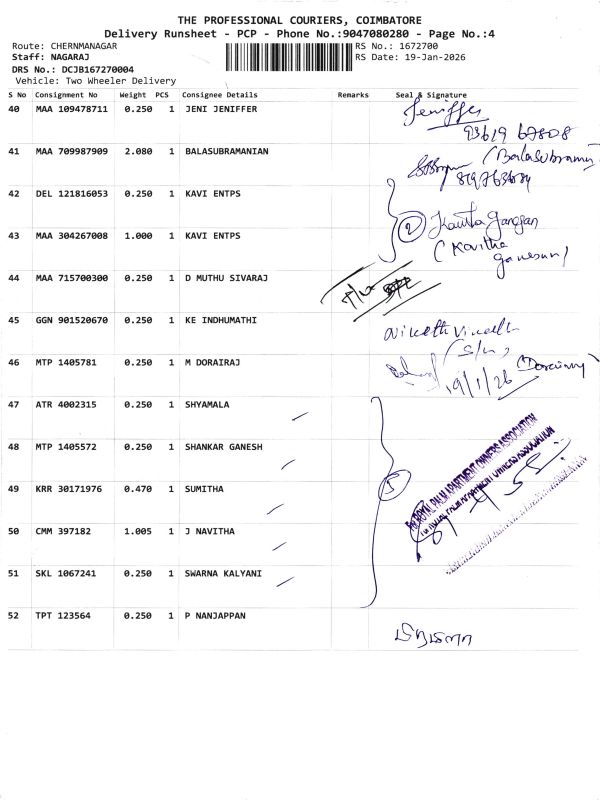 THE PROFESSIONAL COURIERS, COIMBATORE
Delivery Runsheet - PCP - Phone No.:9047080280 - Page No.:4
Route: CHERNMANAGAR
RS No.: 1672700
Staff: NAGARAJ
RS Date: 19-Jan-2026
DRS No.: DCJB167270004
Vehicle: Two Wheeler Delivery
S No Consignment No Weight PCS Consignee Details Remarks Seal & Signature
40 MAA 109478711 0.250 1 JENI JENIFFER Jeniffer
41 MAA 709987909 2.080 1 BALASUBRAMANIAN
42 DEL 121816053 0.250 1 KAVI ENTPS
43 MAA 304267008 1.000 1 KAVI ENTPS
2
(Kavitha
44 MAA 715700300 0.250 1 D MUTHU SIVARAJ
45 GGN 901520670 0.250 1 KE INDHUMATHI
46 MTP 1405781 0.250 1 M DORAIRAJ
19/1/26
47 ATR 4002315 0.250 1 SHYAMALA
48 MTP 1405572 0.250 1 SHANKAR GANESH
49 KRR 30171976 0.470 1 SUMITHA
5
50 CMM 397182 1.005 1 J NAVITHA
51 SKL 1067241 0.250 1 SWARNA KALYANI
52 TPT 123564 0.250 1 P NANJAPPAN